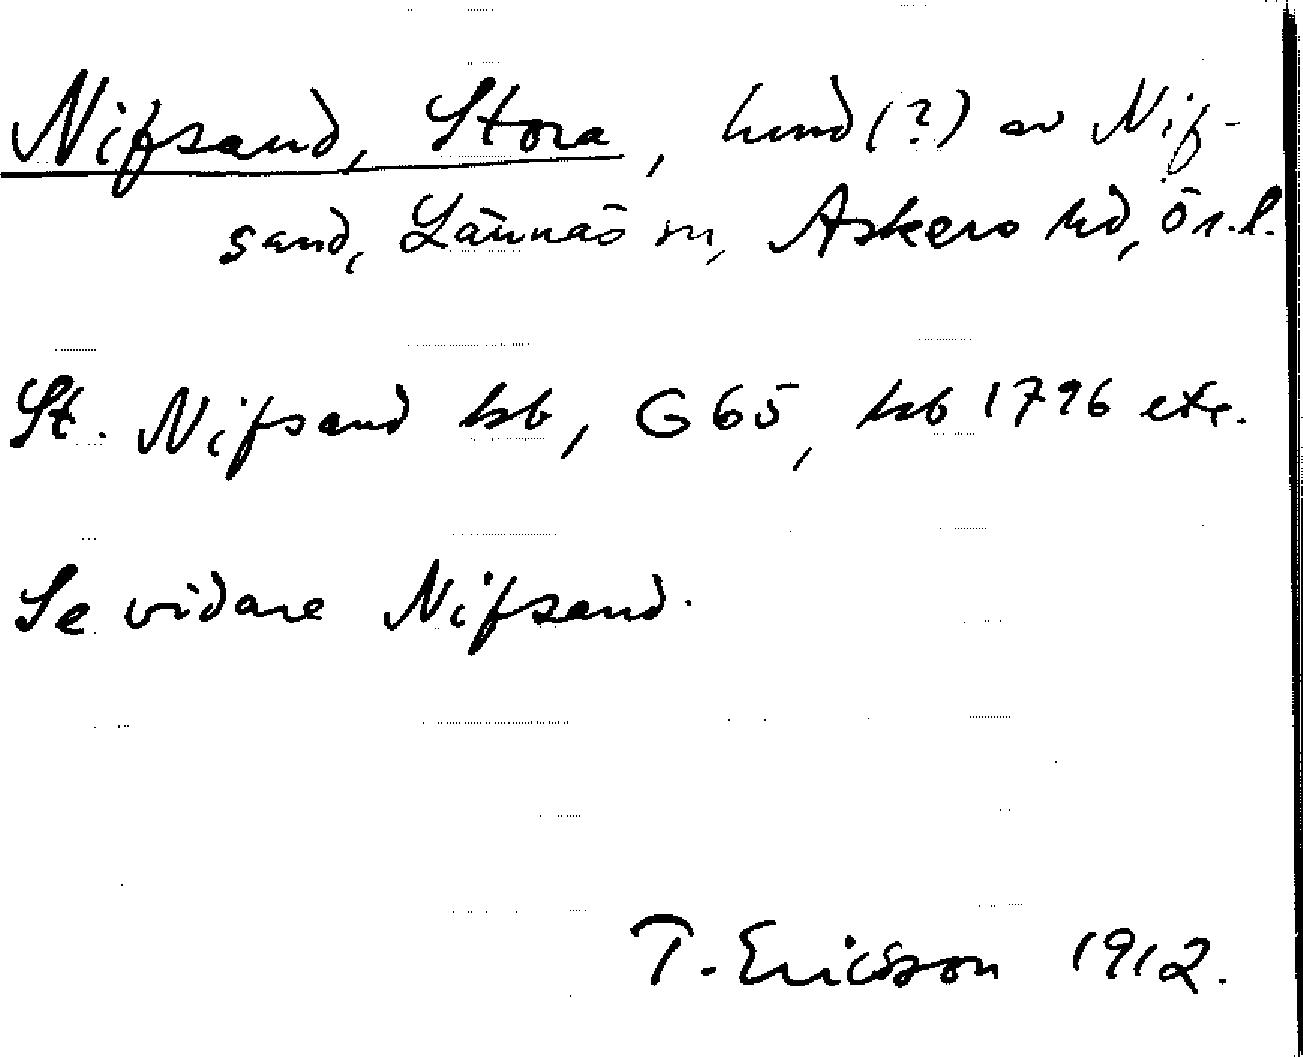 Nifsand, Stora, hmd(?) av Nif-
sand, Lännäs sn, Askers hd, Ör.l.
St. Nifsand hsb, G 65, hsb 1796 etc.
Se vidare Nifsand.
T. Ericsson 1912.